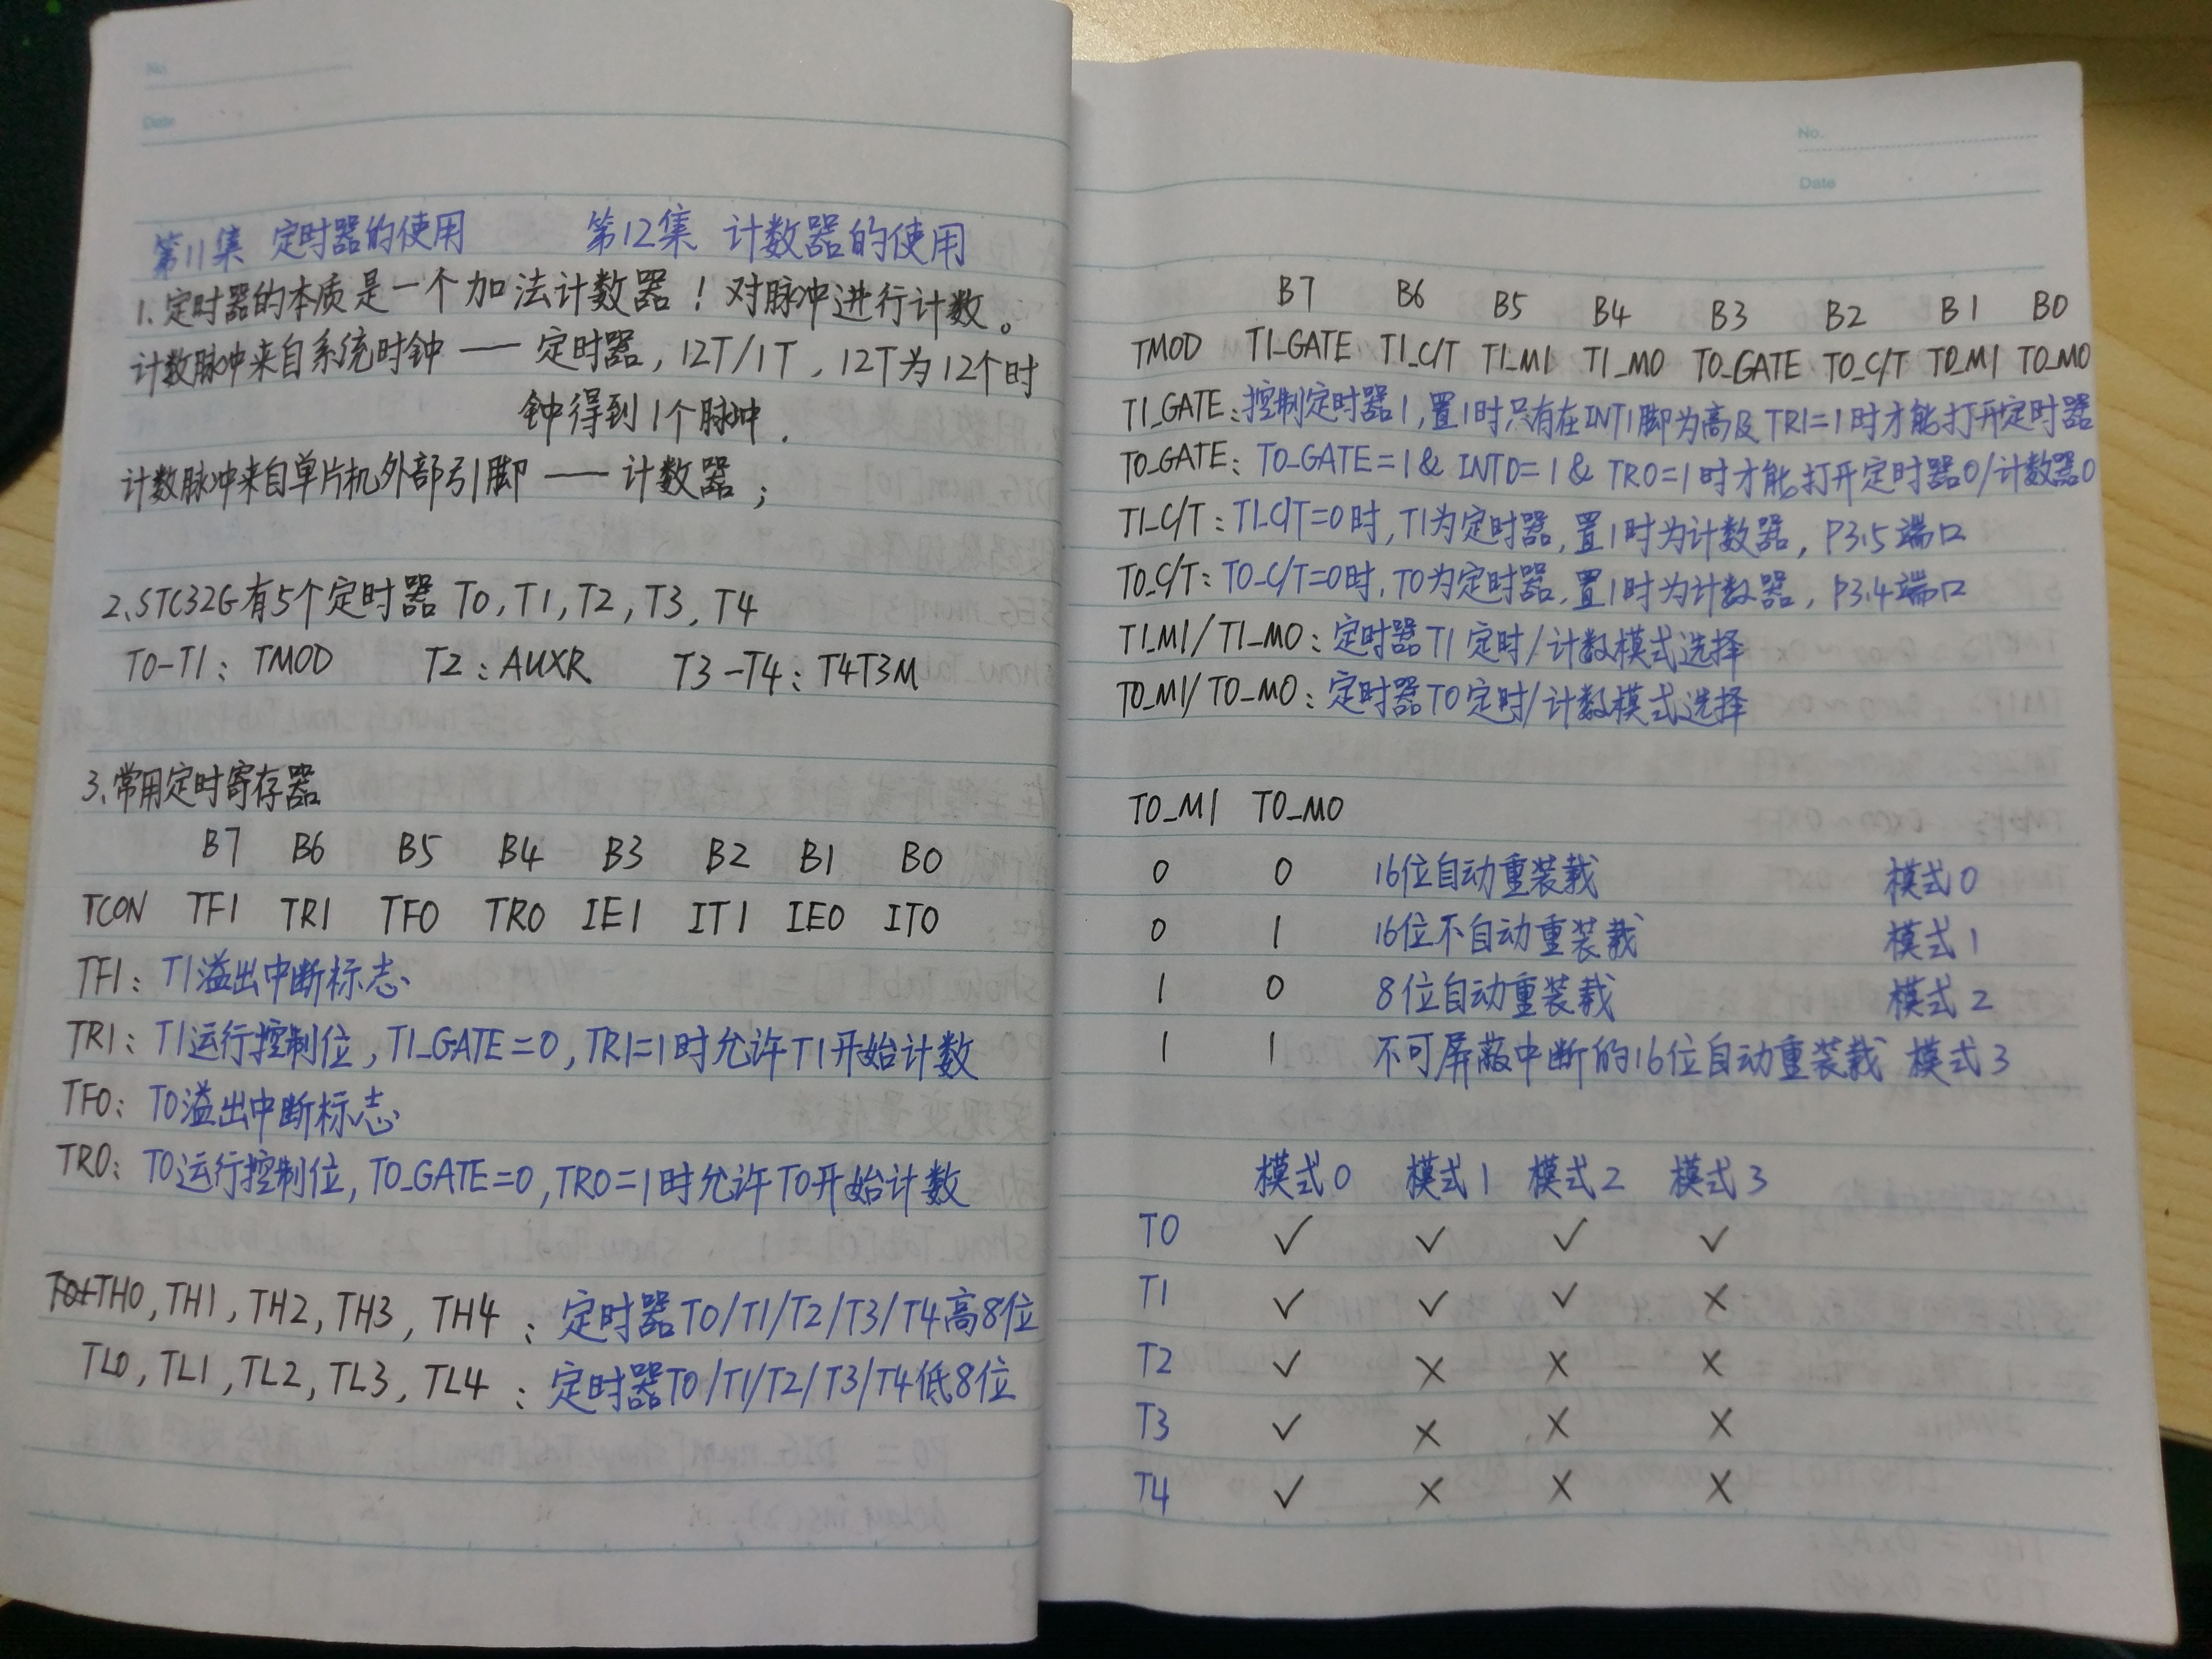 No.
Date
第11集 定时器的使用 第12集 计数器的使用
1.定时器的本质是一个加法计数器！对脉冲进行计数。
计数脉冲来自系统时钟 —— 定时器，12T/1T，12T为12个时
钟得到1个脉冲．
计数脉冲来自单片机外部引脚 —— 计数器；
2、STC32G有5个定时器 T0，T1，T2，T3，T4
T0-T1：TMOD T2：AUXR T3-T4：T4T3M
3、常用定时寄存器
B7 B6 B5 B4 B3 B2 B1 B0
TCON TF1 TR1 TF0 TR0 IE1 IT1 IE0 IT0
TF1：T1溢出中断标志
TR1：T1运行控制位，T1_GATE=0，TR1=1时允许T1开始计数
TF0：T0溢出中断标志
TR0：T0运行控制位，T0_GATE=0，TR0=1时允许T0开始计数
TH0，TH1，TH2，TH3，TH4：定时器T0/T1/T2/T3/T4高8位
TL0，TL1，TL2，TL3，TL4：定时器T0/T1/T2/T3/T4低8位
No.
Date
B7 B6 B5 B4 B3 B2 B1 B0
TMOD T1_GATE T1_C/T T1_M1 T1_M0 T0_GATE T0_C/T T0_M1 T0_M0
T1_GATE：控制定时器1，置1时只有在INT1脚为高及TR1=1时才能打开定时器
T0_GATE：T0_GATE=1 & INT0=1 & TR0=1时才能打开定时器0/计数器0
T1_C/T：T1_C/T=0时，T1为定时器，置1时为计数器，P3.5端口
T0_C/T：T0_C/T=0时，T0为定时器，置1时为计数器，P3.4端口
T1_M1/T1_M0：定时器T1定时/计数模式选择
T0_M1/T0_M0：定时器T0定时/计数模式选择
T0_M1 T0_M0
0 0 16位自动重装载 模式0
0 1 16位不自动重装载 模式1
1 0 8位自动重装载 模式2
1 1 不可屏蔽中断的16位自动重装载 模式3
模式0 模式1 模式2 模式3
T0 ✓ ✓ ✓ ✓
T1 ✓ ✓ ✓ ×
T2 ✓ × × ×
T3 ✓ × × ×
T4 ✓ × × ×